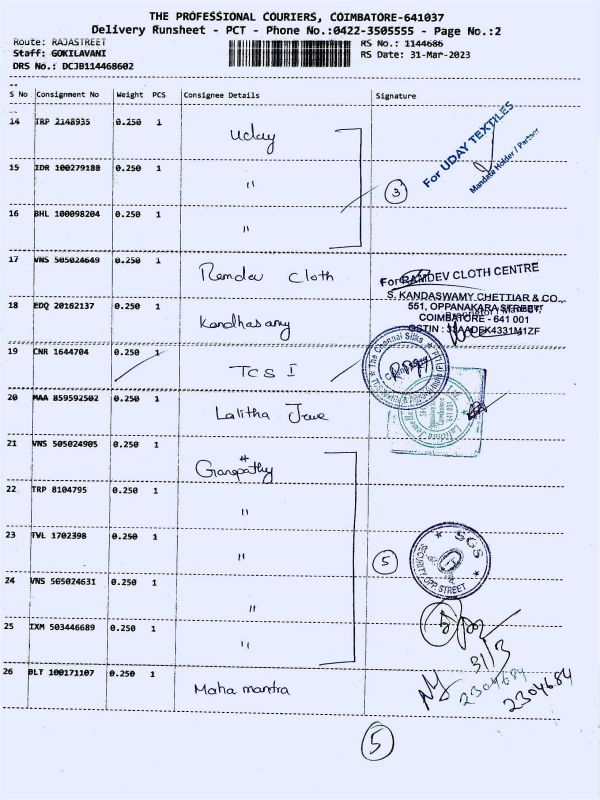 THE PROFESSIONAL COURIERS, COIMBATORE-641037
Delivery Runsheet - PCT - Phone No.:0422-3505555 - Page No.:2
Route: RAJASTREET
RS No.: 1144686
Staff: GOKILAVANI
RS Date: 31-Mar-2023
DRS No.: DCJB114468602
S No Consignment No Weight PCS Consignee Details Signature
14 TRP 2148935 0.250 1 Uday
For UDAY TEXTILES
Mandate Holder / Partner
15 IDR 100279180 0.250 1 "
3
16 BHL 100098204 0.250 1 "
17 VNS 505024649 0.250 1 Ramdev Cloth
For RAMDEV CLOTH CENTRE
18 EDQ 20162137 0.250 1 Kandhasamy
S. KANDASWAMY CHETTIAR & CO.,
551, OPPANAKARA STREET,
COIMBATORE - 641 001
19 CNR 1644704 0.250 1 TCS I
The Chennai Silks
20 MAA 859592502 0.250 1 Lalitha Jewe
21 VNS 505024905 0.250 1 Ganapathy
22 TRP 8104795 0.250 1 "
23 TVL 1702398 0.250 1 "
5
SGS
SECURITY OPP STREET
24 VNS 505024631 0.250 1 "
25 IXM 503446689 0.250 1 "
31/3
26 BLT 100171107 0.250 1 Maha mantra
2304684
2304684
5